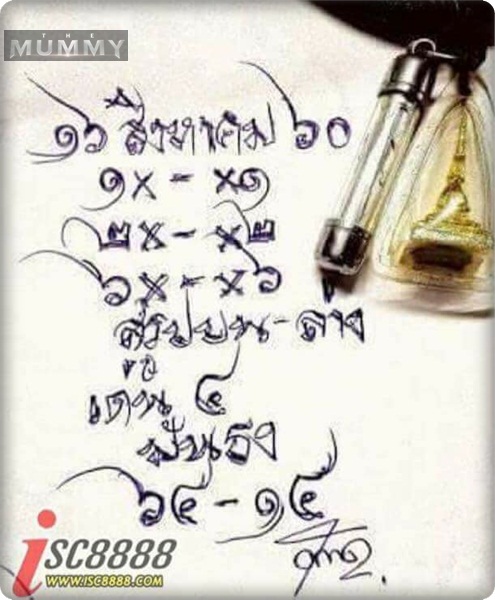 THE
MUMMY
๑๖ สิงหาคม ๖๐
๑x - x๑
๒x - x๒
๖x - x๖
สรุปบน - ล่าง
ขอ
เด่น ๔
ฟันธง
๖๔ - ๑๔
iSC8888
WWW.ISC8888.COM